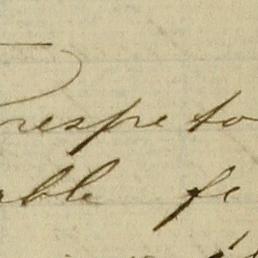 respeto
able fe